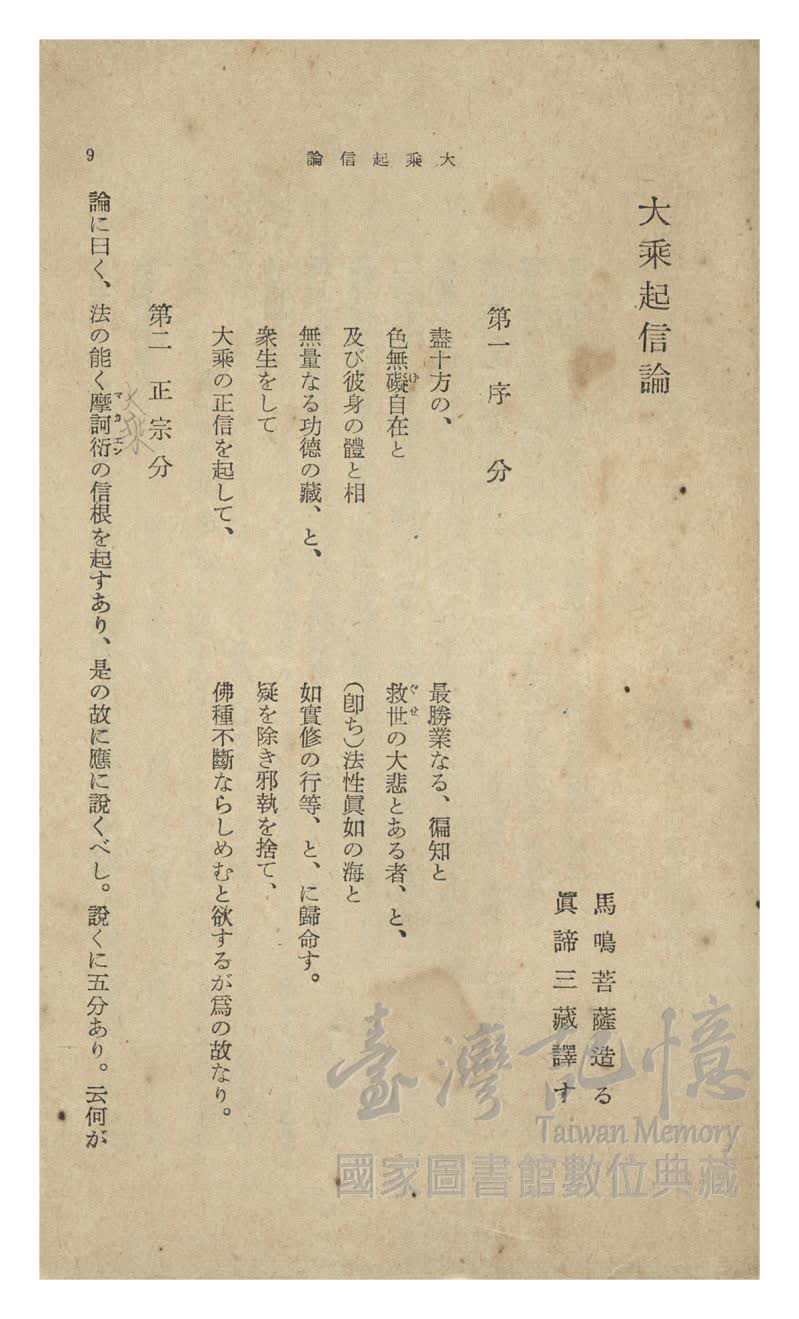 大乘起信論
9
大乘起信論
馬鳴菩薩造る
眞諦三藏譯す
第一 序 分
盡十方の、 最勝業なる、徧知と
色無礙自在と 救世の大悲とある者、と、
げ
ぐせ
及び彼身の體と相 (卽ち)法性眞如の海と
無量なる功德の藏、と、 如實修の行等、と、に歸命す。
衆生をして 疑を除き邪執を捨て、
大乘の正信を起して、 佛種不斷ならしめむと欲するが爲の故なり。
第二 正宗分
大乘
論に曰く、法の能く摩訶衍の信根を起すあり、是の故に應に說くべし。說くに五分あり。云何が
マカエン
臺灣記憶
Taiwan Memory
國家圖書館數位典藏